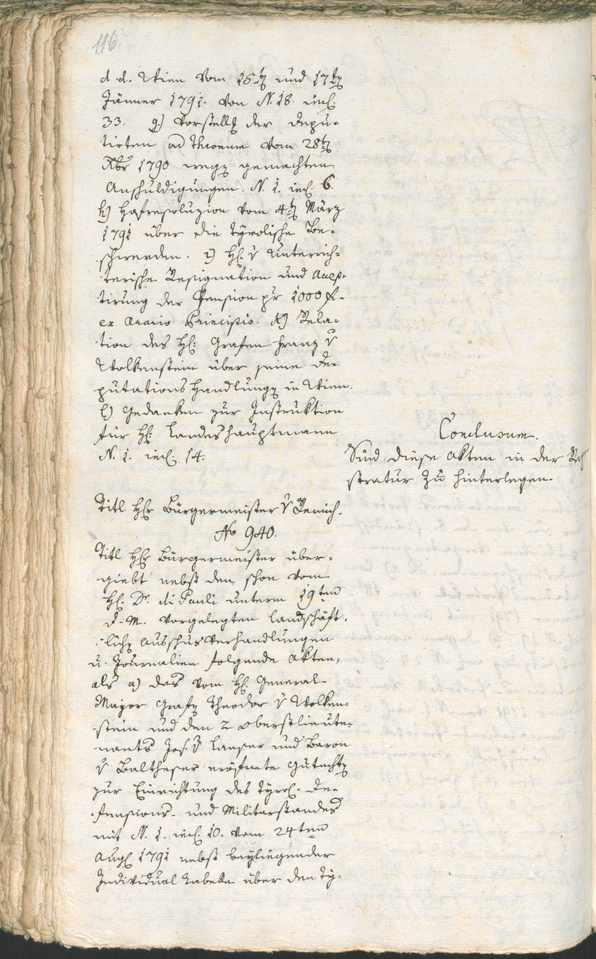 116
d d. Wien vom 15ten und 17ten
Jänner 1791. von N. 18. incl.
33. g) Vorstellg der Depu-
tirten ad Thronum vom 28ten
Xbr 1790 wegen gemachten
Anschuldigungen. N. 1. incl. 6.
h) Hofresoluzion vom 4ten März
1791 über die tyrolische Be-
schwerden. i) Hl: v Unterrich-
terische Resignation und Accep-
tirung der Pension pr 1000 f.
ex Aerario Principis. k) Rela-
tion des Hl: Grafen Franz v
Wolkenstein über seine De-
putationshandlungen in Wien.
l) Gedanken zur Instruktion
für Hl: Landeshauptmann
N. 1. incl. 14.
Conclusum.
Sind diese Akten in der Re
stratur zu hinterlegen.
Titl Hr Bürgermeister v Remich.
No 940.
Titl Hr Bürgermeister über-
giebt nebst den schon vom
Hl: Dr. di Pauli unterm 19ten
d. M. vorgelegten landschäft-
lichen Ausschusverhandlungen
u. Journalien folgende Akten,
als a) das vom Hl: General-
Mayor Grafen Theodor v Wolken-
stein und den 2 Oberstlieute-
nants Jos: v Lanser und Baron
v Baltheser eröfnete Gutachten
zur Einrichtung des tyrol. De-
fensions- und Militarstandes
mit N. 1. incl. 10. vom 24ten
Augt 1791 nebst beyliegender
Individual Tabelle über den Ty-